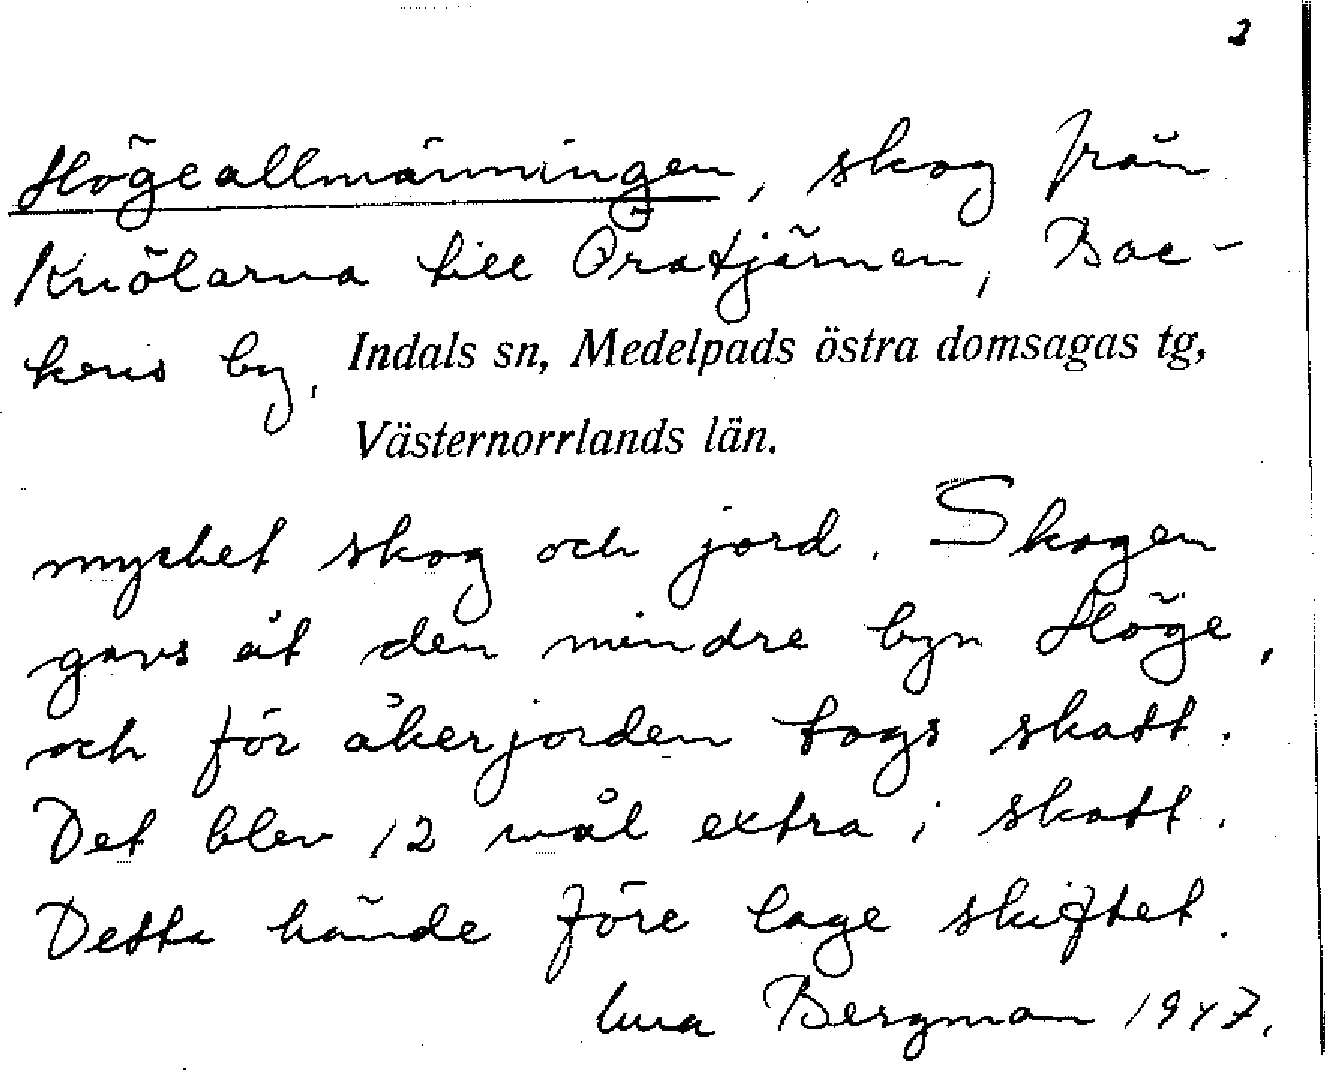 2
Högeallmänningen, skog från
Knölarna till Öratjärnen, Bac-
kens by, Indals sn, Medelpads östra domsagas tg,
Västernorrlands län.
mycket skog och jord. Skogen
gavs åt den mindre byn Höge,
och för åkerjorden togs skatt.
Det blev 12 mål extra i skatt.
Detta hände före lage skiftet.
Bergman 1947.